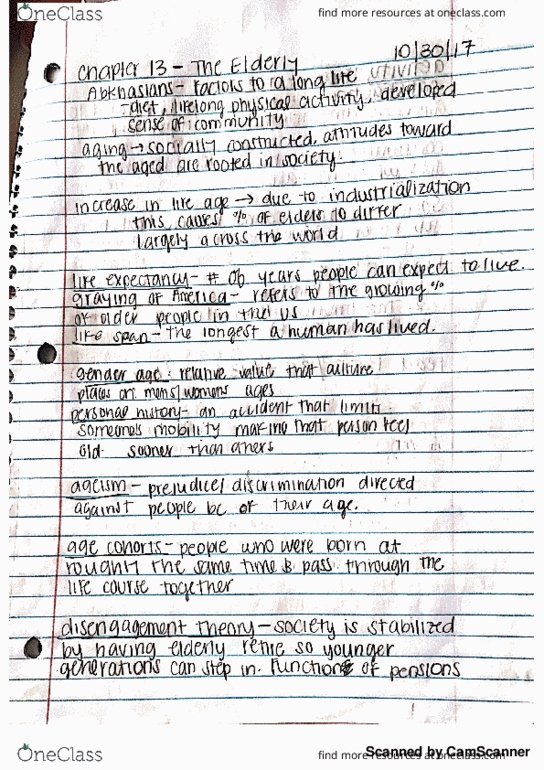 OneClass
find more resources at oneclass.com
10/30/17
Chapter 13 - The Elderly
Abkhasians - factors to a long life
-diet, lifelong physical activity, developed
sense of community
aging → socially constructed, attitudes toward
the aged are rooted in society.
increase in life age → due to industrialization
this causes % of elders to differ
largely across the world
life expectancy - # of years people can expect to live.
graying of America - refers to the growing %
of older people in the US
life span - the longest a human has lived.
gender age: relative value that culture
places on mens/womens ages
personal history - an accident that limits
someones mobility making that person feel
old sooner than others
ageism - prejudice/discrimination directed
against people bc of their age.
age cohorts - people who were born at
roughly the same time & pass through the
life course together
disengagement theory - society is stabilized
by having elderly retire so younger
generations can step in. Functions of pensions
OneClass
find more resources at oneclass.com
Scanned by CamScanner